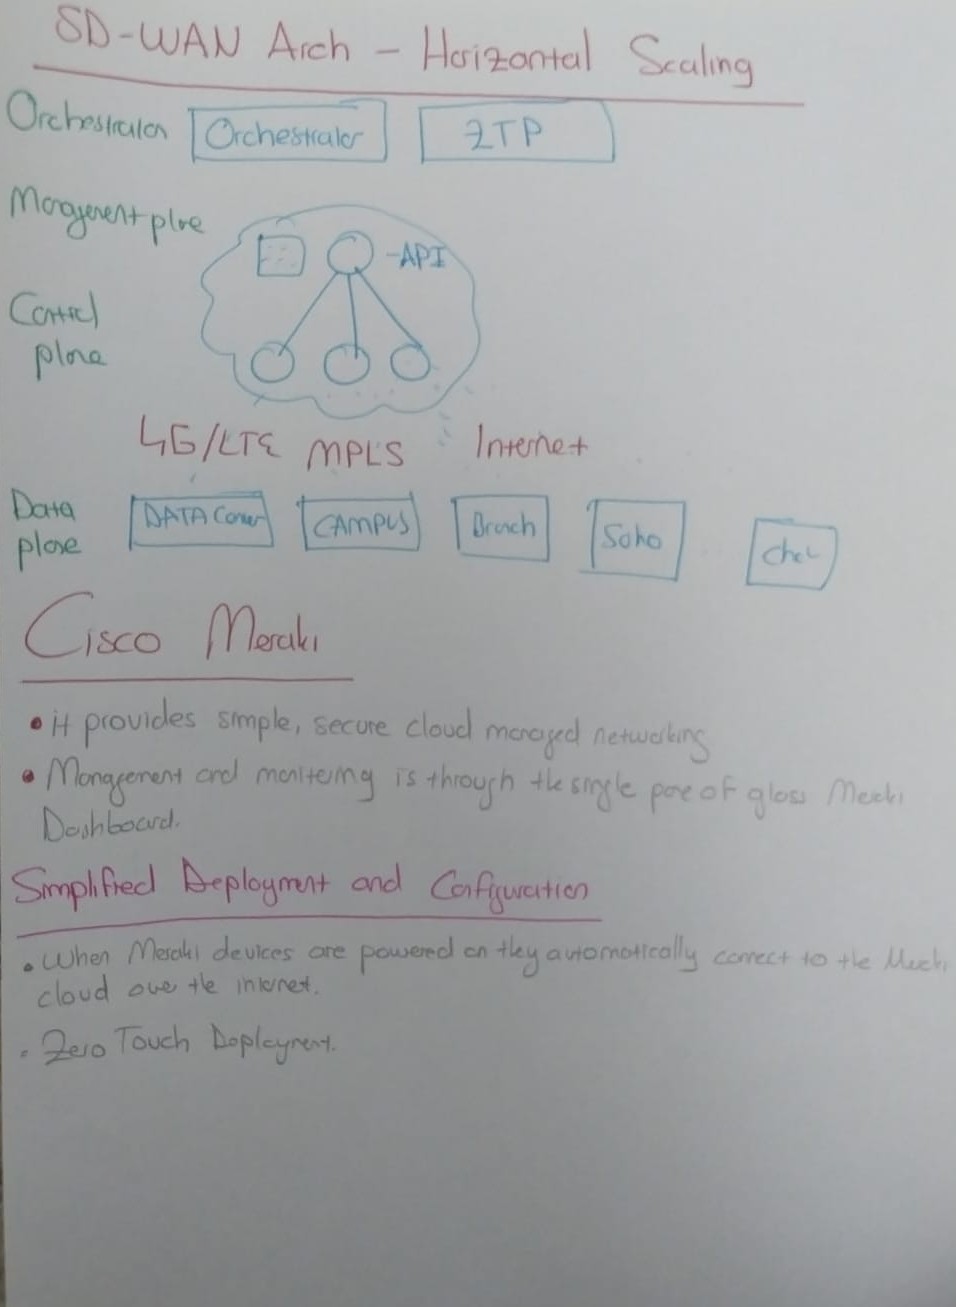 SD-WAN Arch - Horizontal Scaling
Orchestration Orchestrator ZTP
Management plane
-API
Control
plane
4G/LTE MPLS Internet
Data
plane
DATA Center CAMPUS Branch Soho
Cisco Meraki
• it provides simple, secure cloud managed networking
• Management and monitering is through the single pane of glass Meraki
Dashboard.
Simplified Deployment and Configuration
• When Meraki devices are powered on they automatically connect to the Meraki
cloud over the internet.
• Zero Touch Deployment.